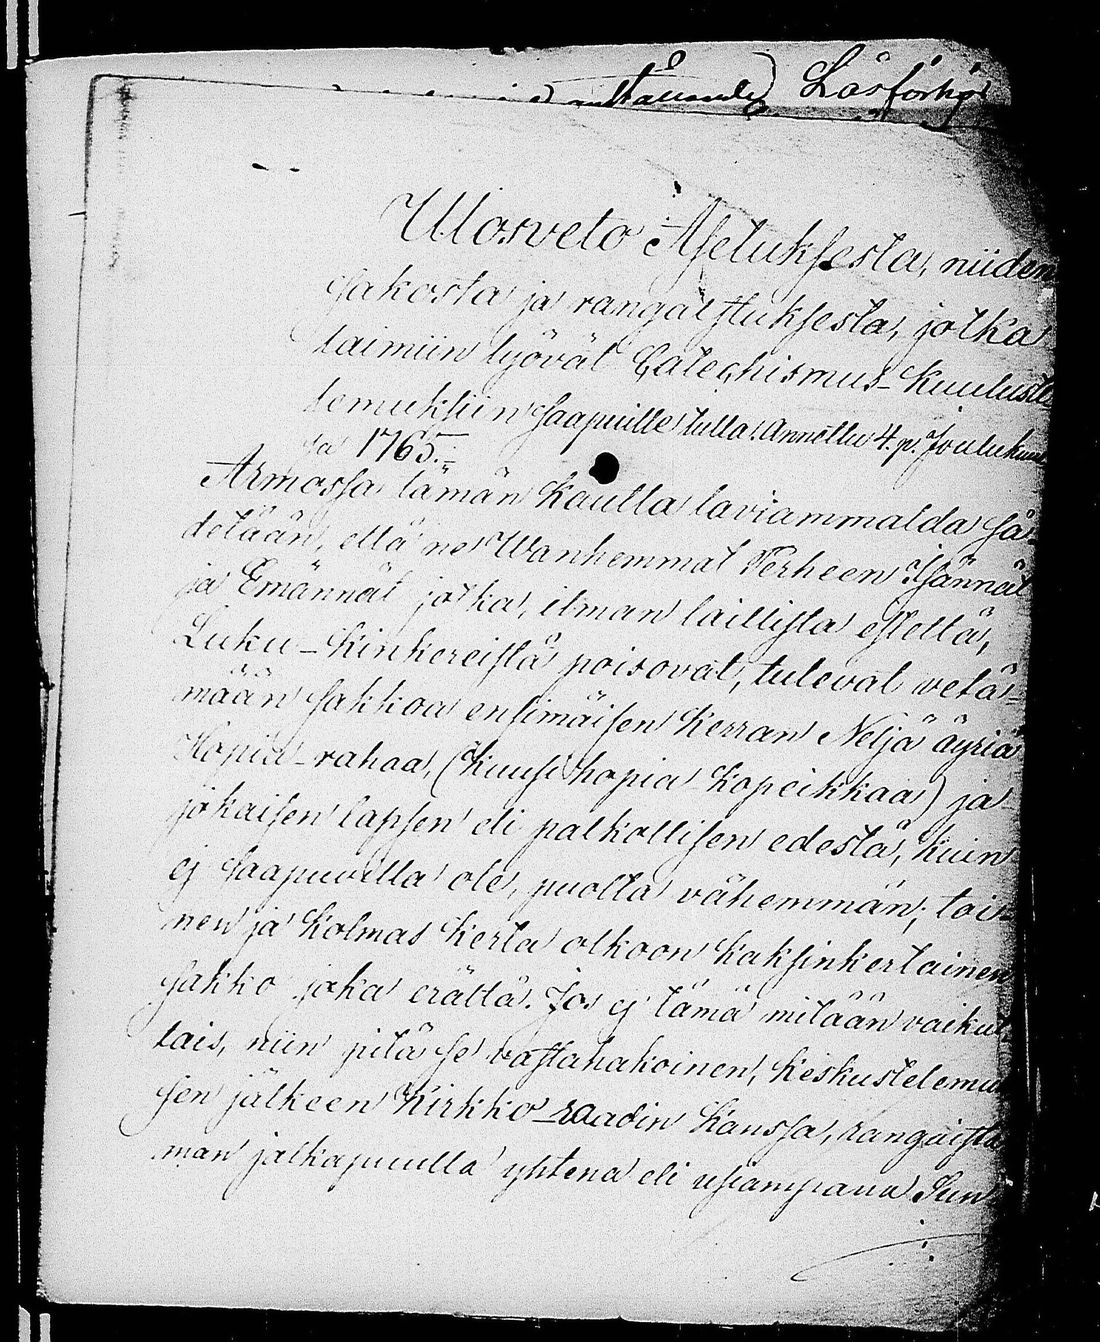 Läsförhör
Ulosveto Asetuksesta, niiden
sakosta ja rangaistuksesta, jotka
laimiin lyövät Catechismus-kuuluste-
lemuksiin saapuille tulla. Annettu 4. p. Joulukuu
sa 1765.
Armossa tämän kautta laviammalda sä-
detään, että ne Wanhemmat Perheen Isännät
ja Emännät jotka, ilman laillista estettä,
Luku-kinkereistä poisovat, tulevat vetä-
mään sakkoa ensimäisen kerran Neljä äyriä
Hopia-rahaa, (kuusi hopia kopeikkaa) ja
jokaisen lapsen eli palkollisen edestä, kuin
ej saapuvilla ole, puolta vähemmän; toi-
nen ja kolmas kerta olkoon kaksinkertainen
sakko joka erältä. Jos ej tämä mitään vaikut
tais, niin pitä se vastahakoinen, keskustelemu
sen jälkeen Kirkko-raadin kanssa, rangaista
man jalkapuulla yhtenä eli usiampana Sun